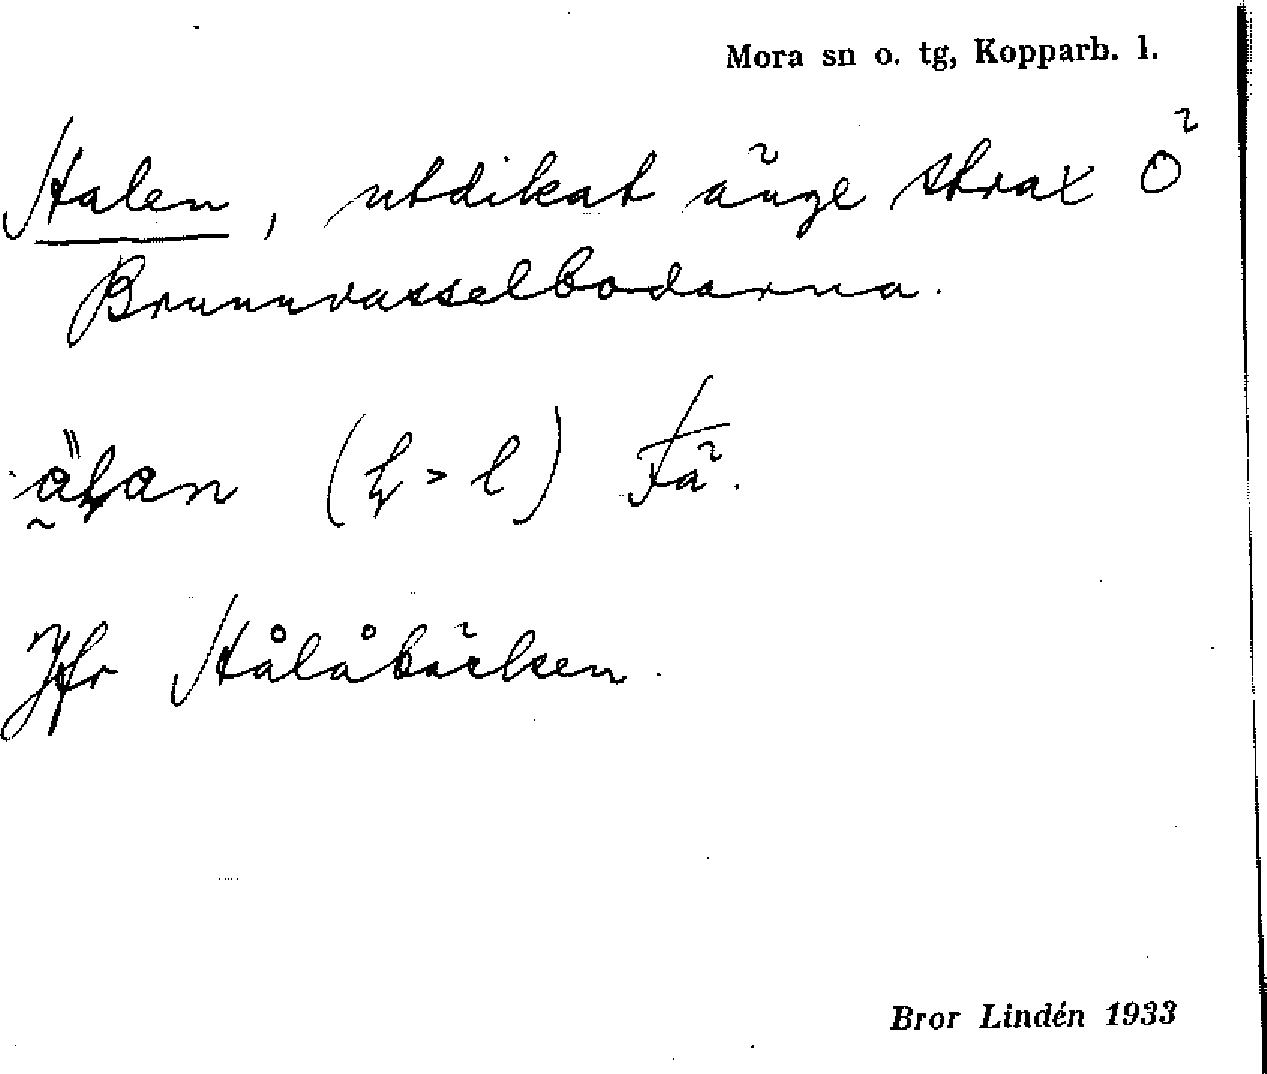 Mora sn o. tg, Kopparb. l.
Stalen, utdikat änge strax Ö
Brunnvasselbodarna.
(ɬ > l) Fä.
Jfr Ståläbäcken.
Bror Lindén 1933